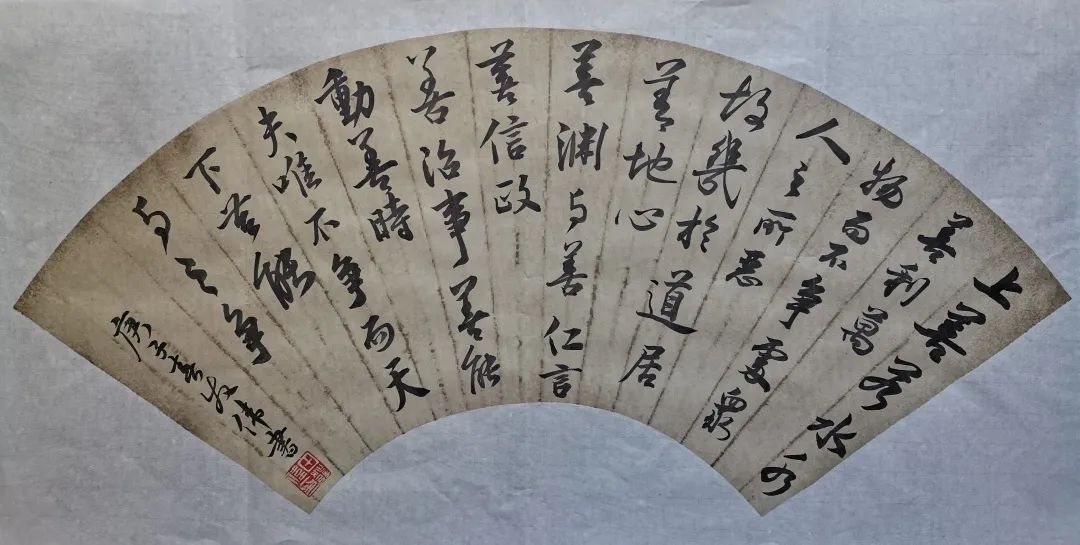 上善若水水
善利萬
物而不争處眾
人之所惡
故幾於道居
善地心
善淵与善仁言
善信政
善治事善能
動善時
夫唯不争而天
下莫能
与之争
庚子春 偉書